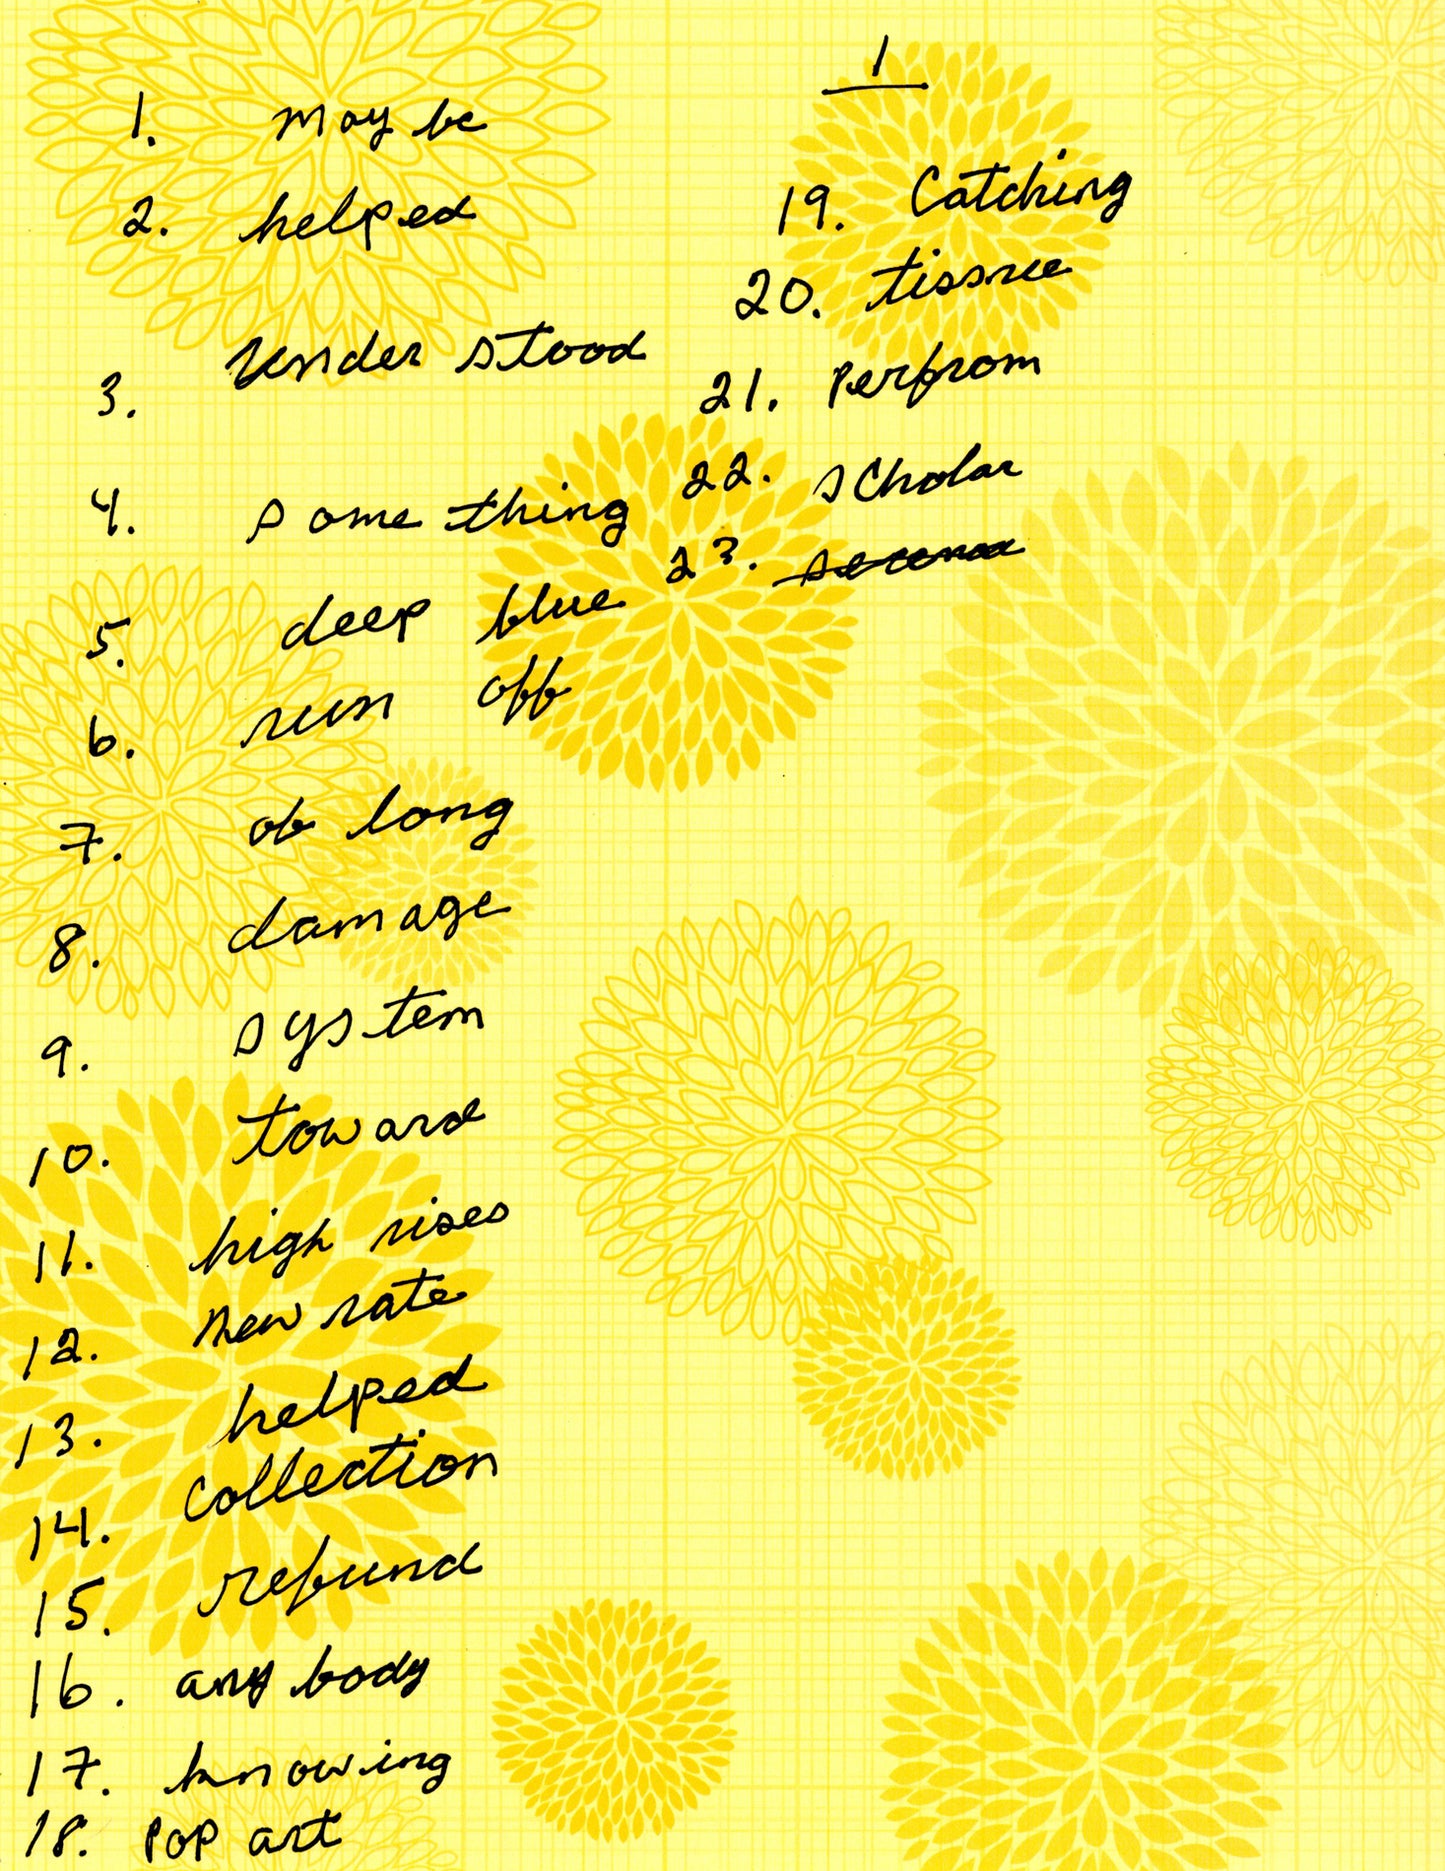 1. may be
2. helped
3. under stood
4. some thing
5. deep blue
6. run off
7. ob long
8. damage
9. system
10. toward
11. high rises
12. new rate
13. helped
14. collection
15. refund
16. any body
17. knowing
18. pop art
1
19. Catching
20. tissue
21. perfrom
22. scholar
23.